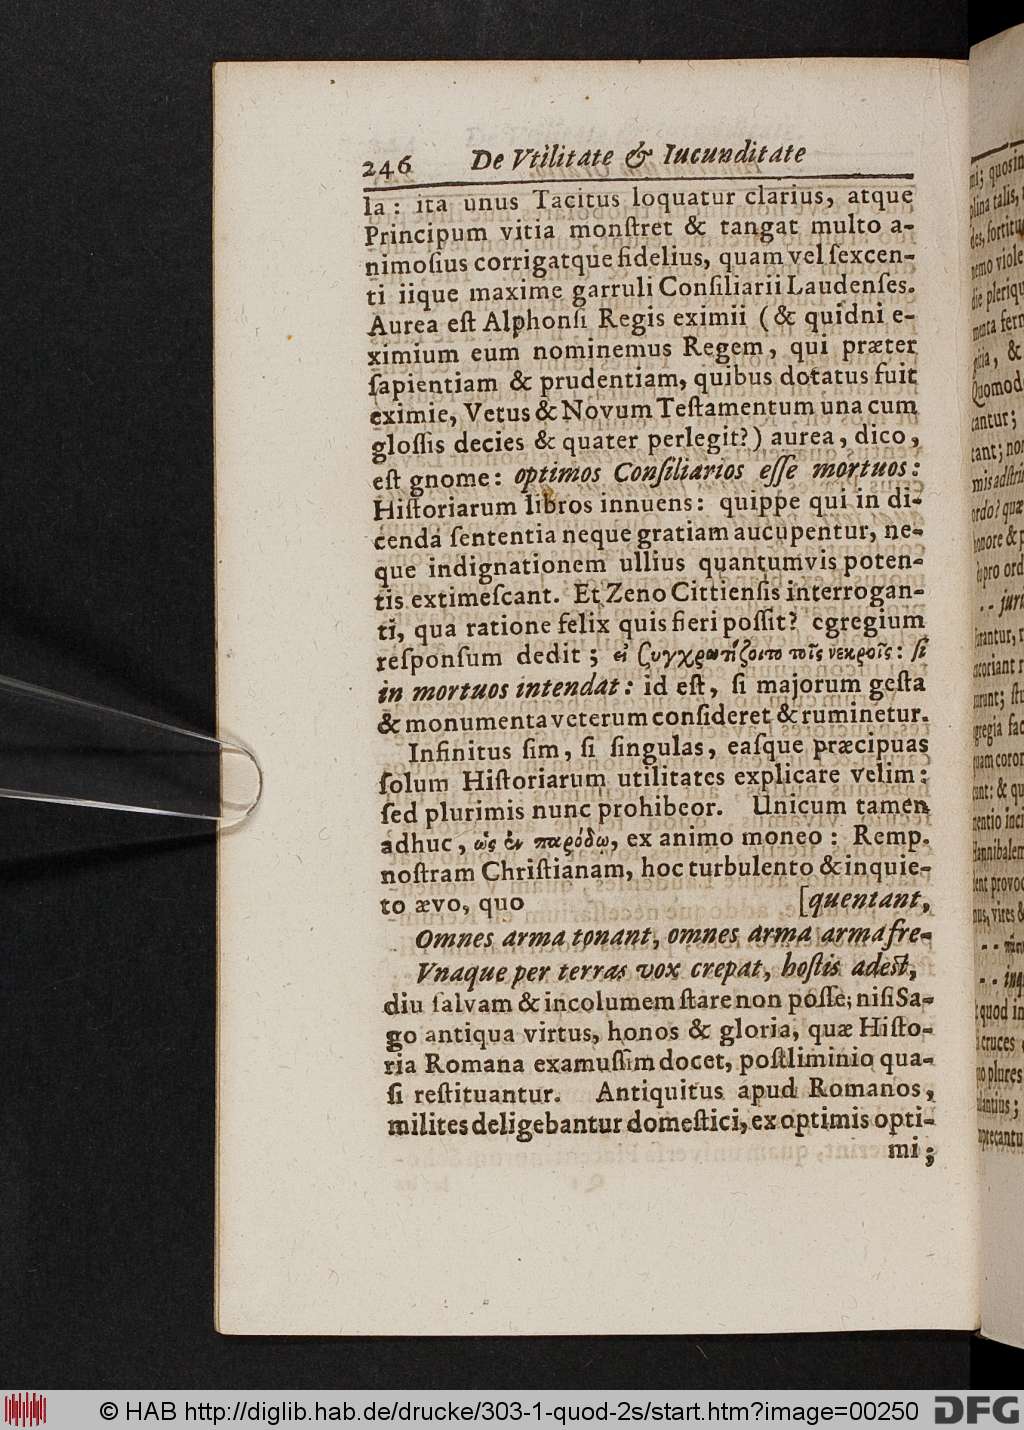 246 De Vtilitate & Iucunditate
la: ita unus Tacitus loquatur clarius, atque
Principum vitia monſtret & tangat multo a-
nimoſius corrigatque fidelius, quam vel ſexcen-
ti iique maxime garruli Conſiliarii Laudenſes.
Aurea eſt Alphonſi Regis eximii (& quidni e-
ximium eum nominemus Regem, qui præter
ſapientiam & prudentiam, quibus dotatus fuit
eximie, Vetus & Novum Teſtamentum una cum
gloſſis decies & quater perlegit?) aurea, dico,
eſt gnome: optimos Conſiliarios eſſe mortuos:
Hiſtoriarum libros innuens: quippe qui in di-
cenda ſententia neque gratiam aucupentur, ne-
que indignationem ullius quantumvis poten-
tis extimeſcant. Et Zeno Cittienſis interrogan-
ti, qua ratione felix quis fieri poſſit? egregium
reſponſum dedit; εἰ ζυγχρωτίζοιτο τοῖς νεκροῖς: ſi
in mortuos intendat: id eſt, ſi majorum geſta
& monumenta veterum conſideret & ruminetur.
Infinitus ſim, ſi ſingulas, eaſque præcipuas
ſolum Hiſtoriarum utilitates explicare velim:
ſed plurimis nunc prohibeor. Unicum tamen
adhuc, ὡς ἐν παρόδῳ, ex animo moneo: Remp.
noſtram Chriſtianam, hoc turbulento & inquie-
to ævo, quo [quentant,
Omnes arma tonant, omnes arma arma fre-
Vnaque per terras vox crepat, hoſtis adeſt,
diu ſalvam & incolumem ſtare non poſſe; niſi Sa-
go antiqua virtus, honos & gloria, quæ Hiſto-
ria Romana examuſſim docet, poſtliminio qua-
ſi reſtituantur. Antiquitus apud Romanos,
milites deligebantur domeſtici, ex optimis opti-
mi;
© HAB http://diglib.hab.de/drucke/303-1-quod-2s/start.htm?image=00250 DFG